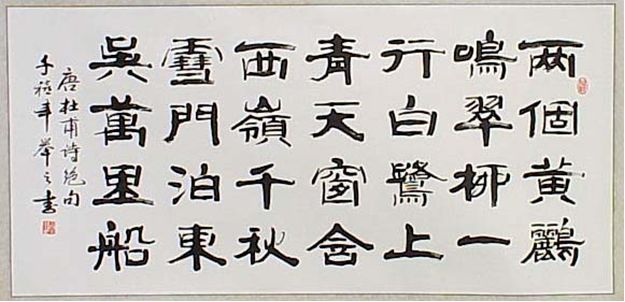 两個黃鸝
鳴翠柳一
行白鷺上
青天窗含
西嶺千秋
雪門泊東
吳萬里船
唐杜甫诗绝句
千禧年之书